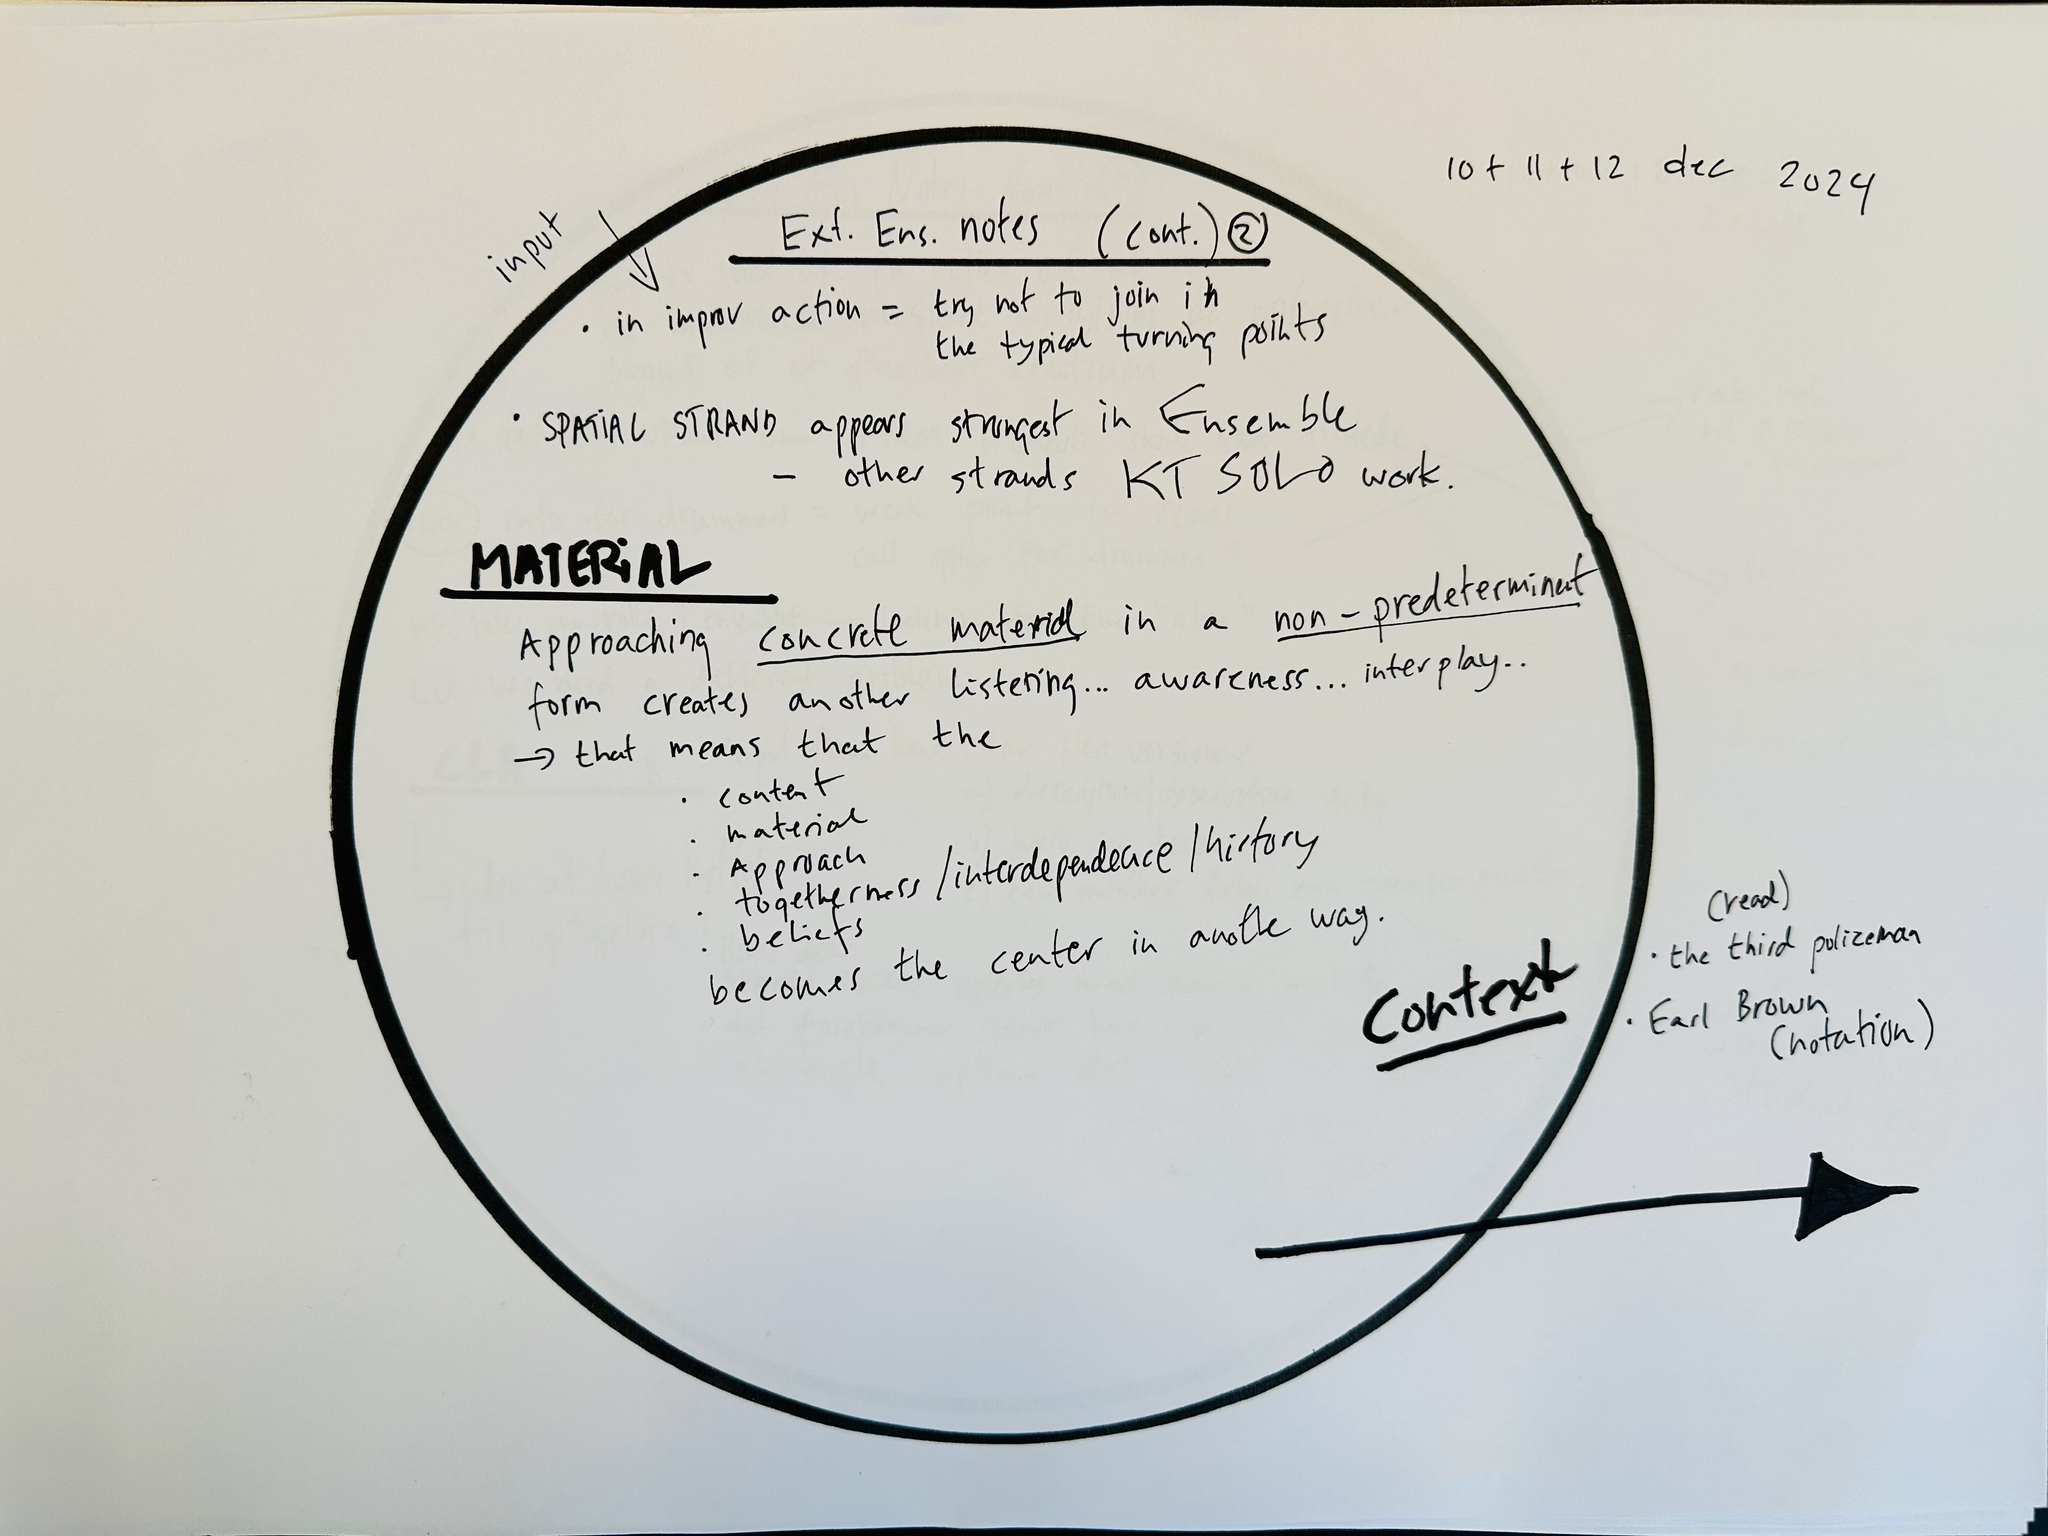 10 + 11 + 12 dec 2024
input
Ext. Ens. notes (cont.) ②
• in improv action = try not to join in
the typical turning points
• SPATIAL STRAND appears strongest in Ensemble
– other strands KT SOLO work.
MATERIAL
Approaching concrete material in a non-predeterminent
form creates another listening... awareness... interplay..
→ that means that the
• content
• material
• Approach
• togetherness/interdependence/history
• beliefs
becomes the center in anothe way.
Context
(read)
• the third polizeman
• Earl Brown
(notation)